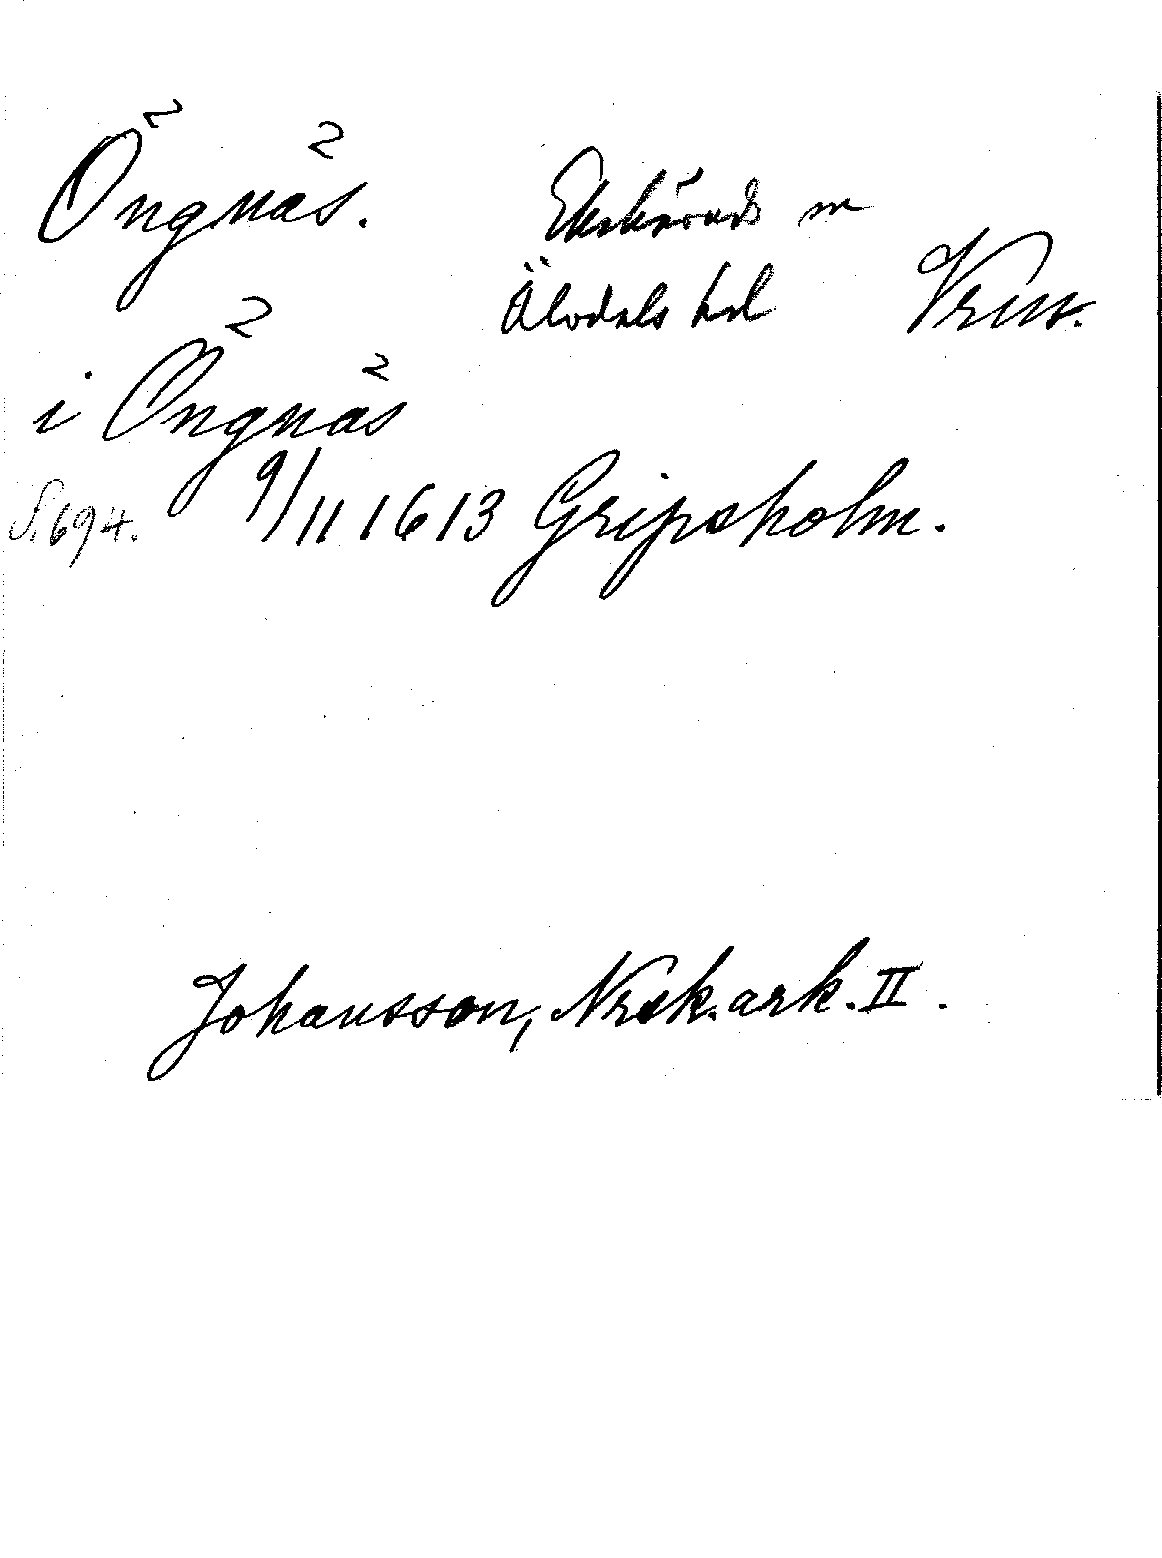 Ängnäs. Ekshärads sn
Älvdals hd Vrm.
i Ängnäs
S. 694. 9/11 1613 Gripsholm.
Johansson, Nrsk. ark. II.